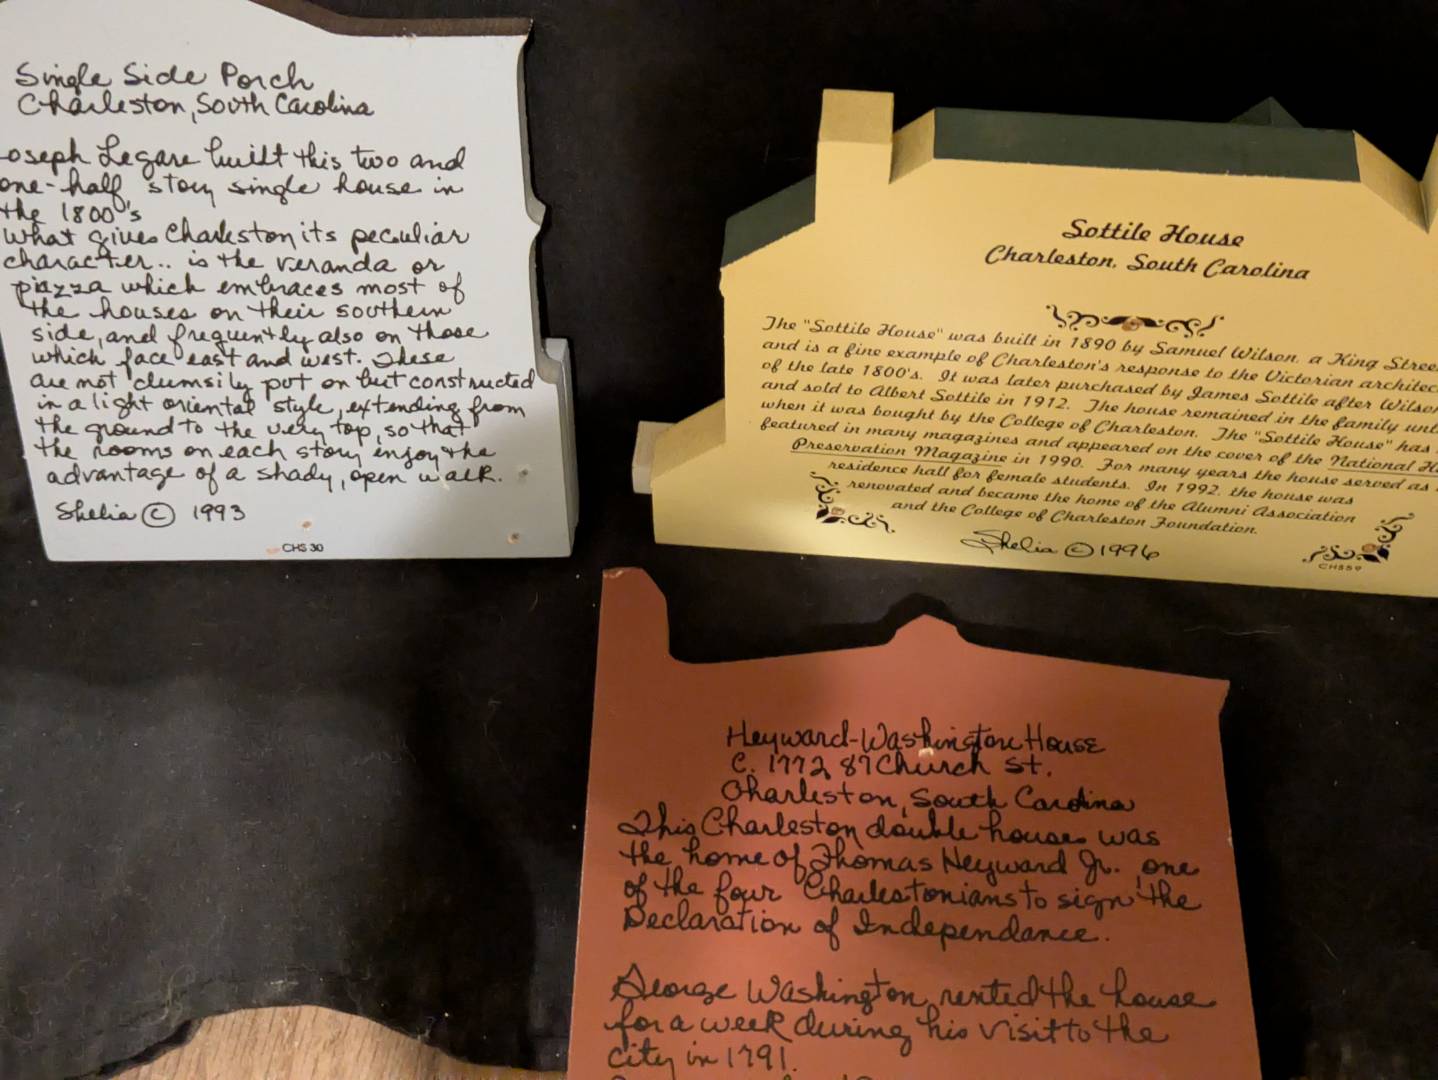 Single Side Porch
Charleston, South Carolina
oseph Legare built this two and
one-half story single house in
the 1800's
What gives Charleston its peculiar
character.. is the veranda or
piazza which embraces most of
the houses on their southern
side, and frequently also on those
which face east and west. These
are not clumsily put on but constructed
in a light oriental style, extending from
the ground to the very top, so that
the rooms on each story enjoy the
advantage of a shady, open walk.
Shelia © 1993
CHS 30
Sottile House
Charleston, South Carolina
The "Sottile House" was built in 1890 by Samuel Wilson, a King Stree
and is a fine example of Charleston's response to the Victorian architec
of the late 1800's. It was later purchased by James Sottile after Wilso
and sold to Albert Sottile in 1912. The house remained in the family unt
when it was bought by the College of Charleston. The "Sottile House" has
featured in many magazines and appeared on the cover of the National H
Preservation Magazine in 1990. For many years the house served as
residence hall for female students. In 1992, the house was
renovated and became the home of the Alumni Association
and the College of Charleston Foundation.
Shelia © 1996
CHS59
Heyward-Washington House
C. 1772 87 Church St.
Charleston, South Carolina
This Charleston double house was
the home of Thomas Heyward Jr., one
of the four Charlestonians to sign the
Declaration of Independance.
George Washington rented the house
for a week during his visit to the
city in 1791.